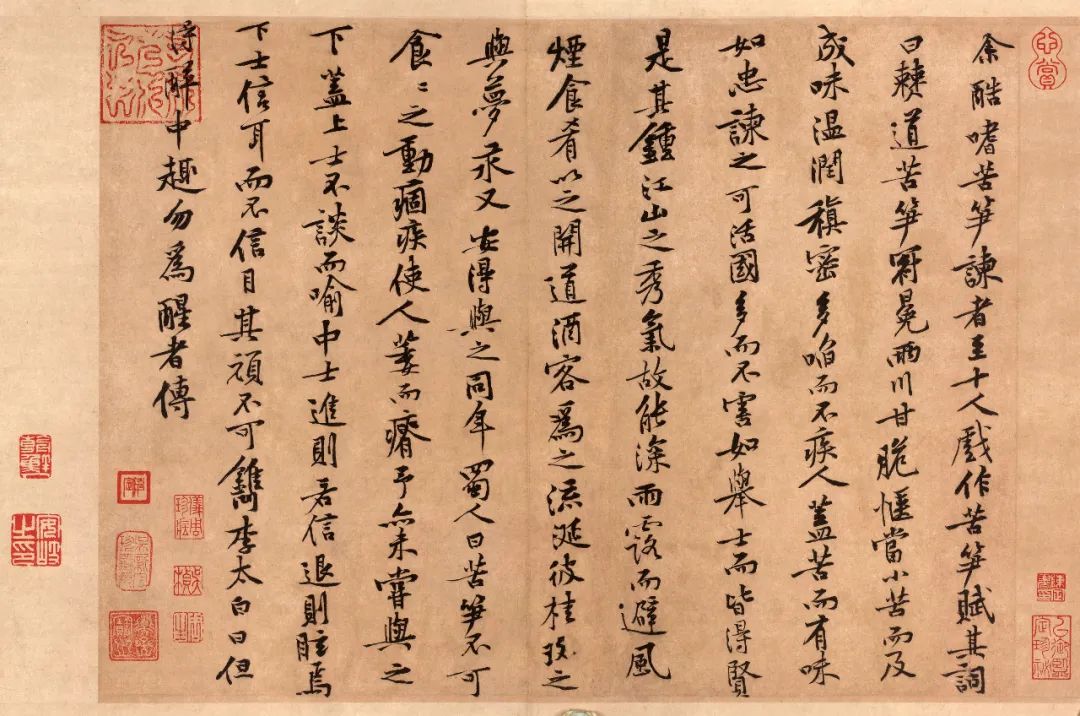 余酷嗜苦笋諫者至十人戲作苦笋賦其詞
曰僰道苦笋冠冕兩川甘脆愜當小苦而及
成味温潤稹密多啗而不疾人蓋苦而有味
如忠諫之可活國多而不害如舉士而皆得賢
是其鍾江山之秀氣故能深雨露而避風
煙食肴以之開道酒客為之流涎彼桂玫之
與夢永又安得與之同年蜀人曰苦笋不可
食〻之動痼疾使人萎而瘠予亦未嘗與之
下蓋上士不談而喻中士進則若信退則眩焉
下士信耳而不信目其頑不可鐫李太白曰但
得醉中趣勿爲醒者傳
心賞
儀周珍藏
安岐之印